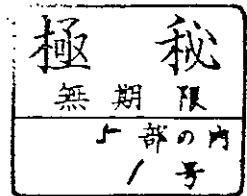 極秘
無期限
5部の内
1号